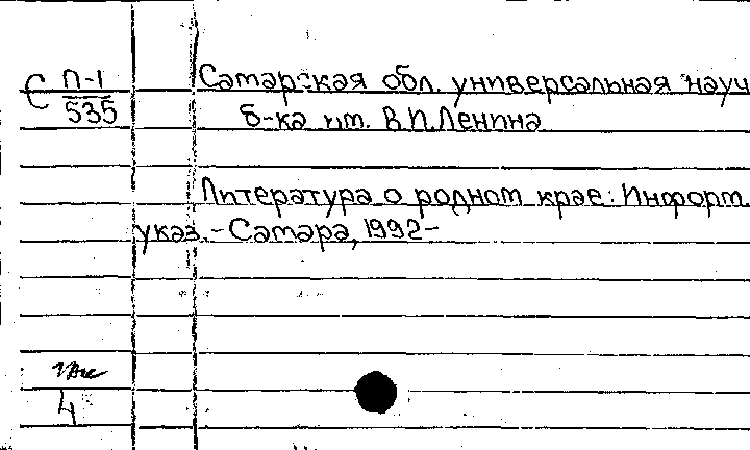 С П-1
535
Самарская обл. универсальная науч
б-ка им. В.И.Ленина
Литература о родном крае: Информ.
указ. – Самара, 1992–
4